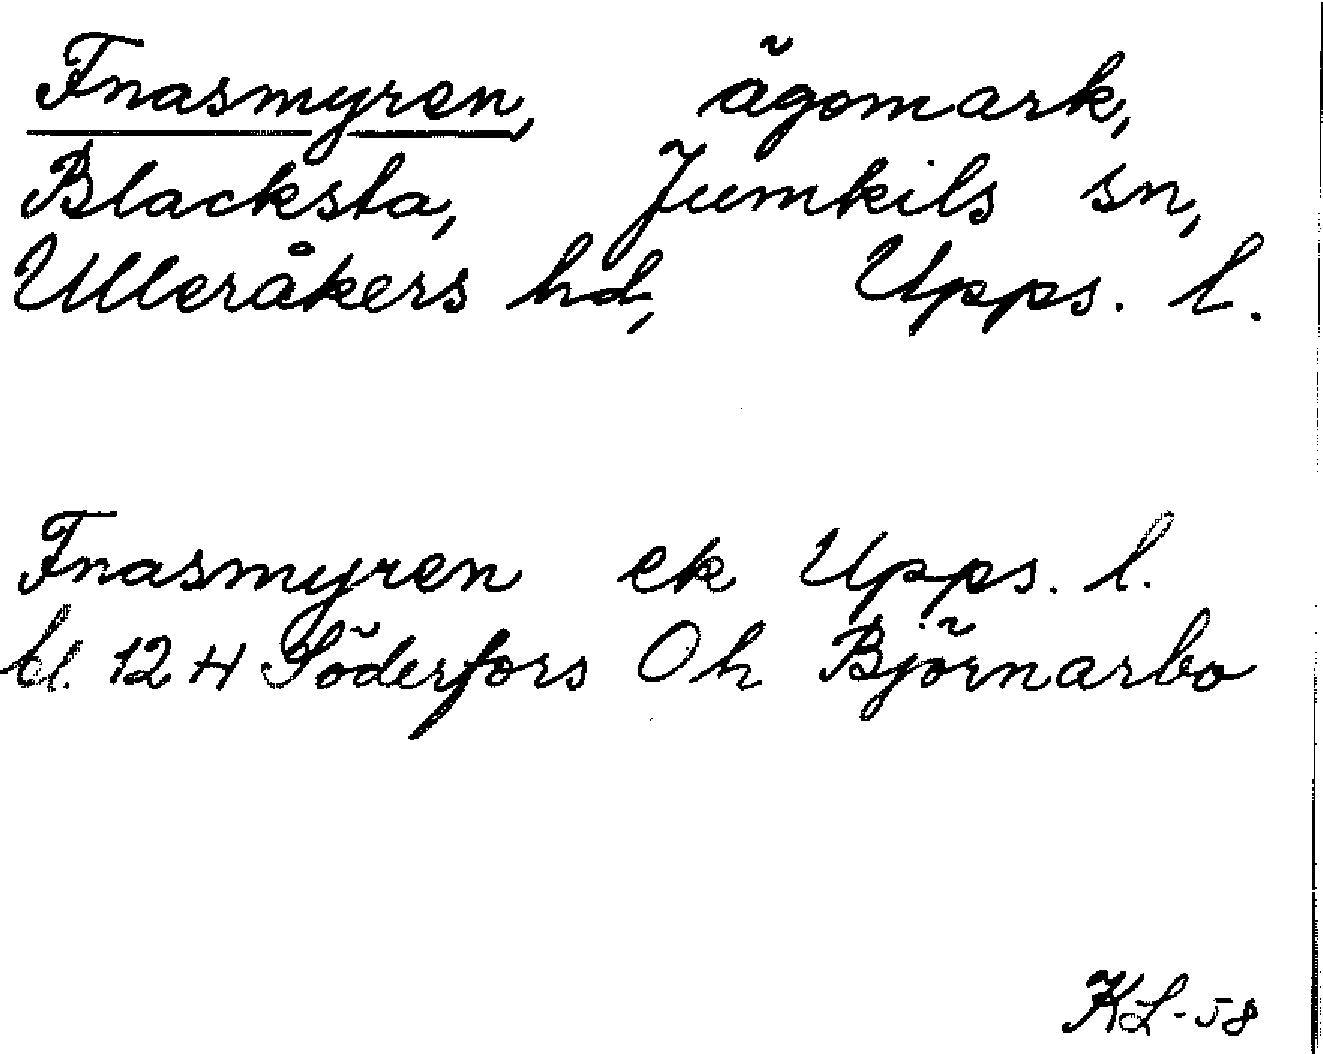 Fnasmyren, ägomark,
Blacksta, Jumkils sn,
Ulleråkers hd, Upps. l.
Fnasmyren ek Upps. l.
bl. 124 Söderfors Oh Björnarbo
KL-58